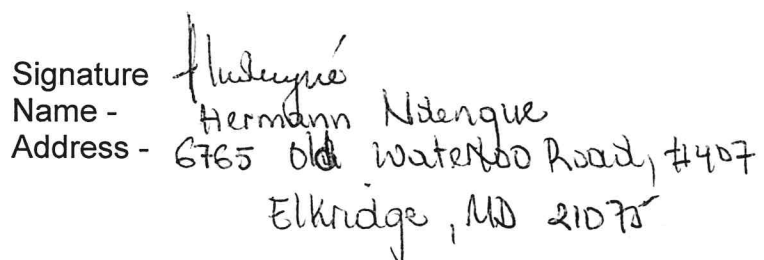 Signature
Name - Hermann Ndengue
Address - 6765 Old Waterloo Road, #407
Elkridge, MD 21075